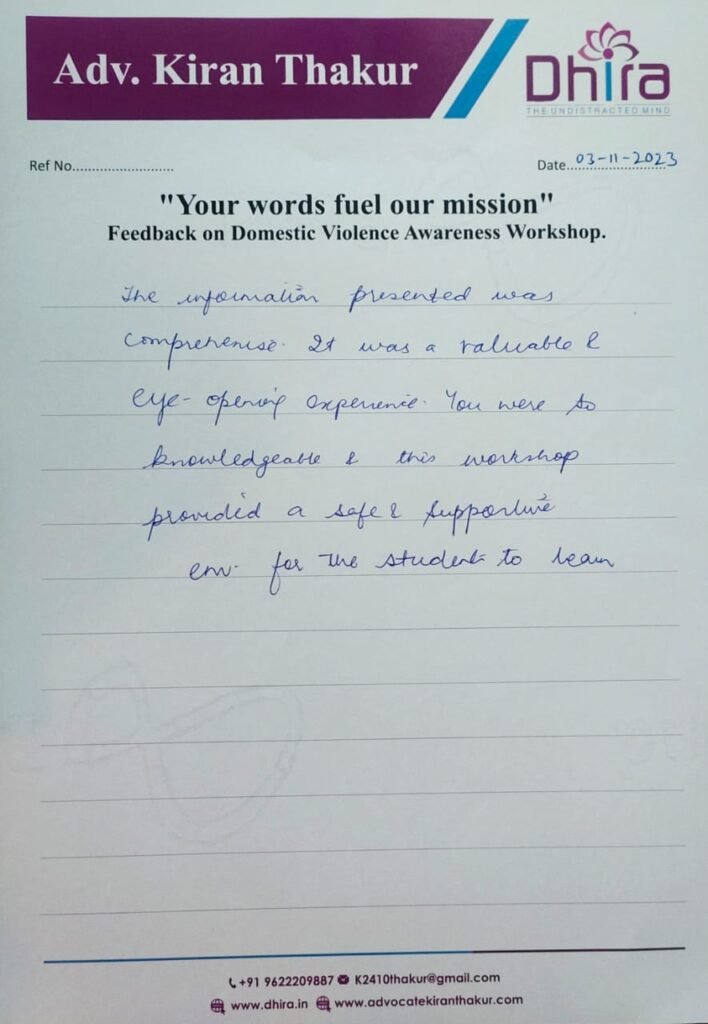 Adv. Kiran Thakur
Dhira
THE UNDISTRACTED MIND
Ref No..........................
Date..03-11-2023
"Your words fuel our mission"
Feedback on Domestic Violence Awareness Workshop.
The information presented was
comprehensise. It was a valuable &
eye-opening experience. You were so
knowledgeable & this workshop
provided a safe & supportive
env. for the students to learn
+91 9622209887 K2410thakur@gmail.com
www.dhira.in www.advocatekiranthakur.com